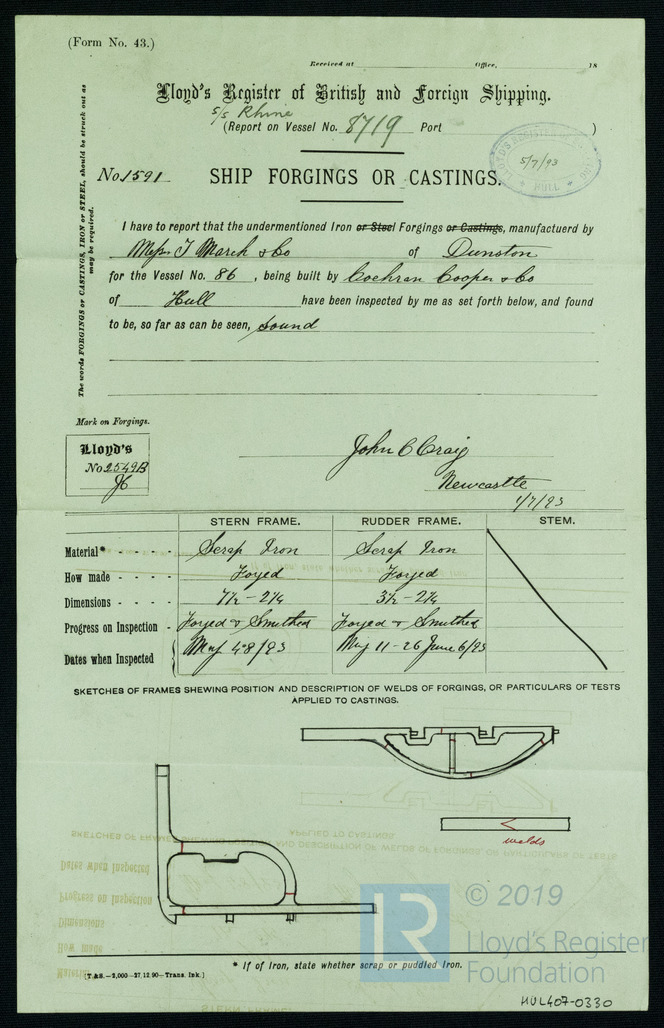 (Form No. 43.)
Received at Office, 18
Lloyd's Register of British and Foreign Shipping.
S/S Rhine
(Report on Vessel No. 8719 Port )
LLOYD'S REGISTER OF SHIPPING
5/7/93
HULL
No 1591
SHIP FORGINGS OR CASTINGS.
The words FORGINGS or CASTINGS, IRON or STEEL, should be struck out as
may be required.
I have to report that the undermentioned Iron or Steel Forgings or Castings, manufactuerd by
Messrs T March & Co of Dunston
for the Vessel No. 86, being built by Cochran Cooper & Co
of Hull have been inspected by me as set forth below, and found
to be, so far as can be seen, sound
Mark on Forgings.
Lloyd's
No 2549B
JC
John C Craig
Newcastle
1/7/93
STERN FRAME. RUDDER FRAME. STEM.
Material* - - - - Scrap Iron Scrap Iron
How made - - - - Forged Forged
Dimensions - - - 7½ - 2¼ 3½ - 2¼
Progress on Inspection - Forged & Smithed Forged & Smithed
Dates when Inspected May 4 8/93 May 11 - 26 June 6/93
SKETCHES OF FRAMES SHEWING POSITION AND DESCRIPTION OF WELDS OF FORGINGS, OR PARTICULARS OF TESTS
APPLIED TO CASTINGS.
welds
LR
© 2019
Lloyd's Register
Foundation
* If of Iron, state whether scrap or puddled Iron.
[T.&S.—2,000—27.12.90—Trans. Ink.]
HUL407-0330